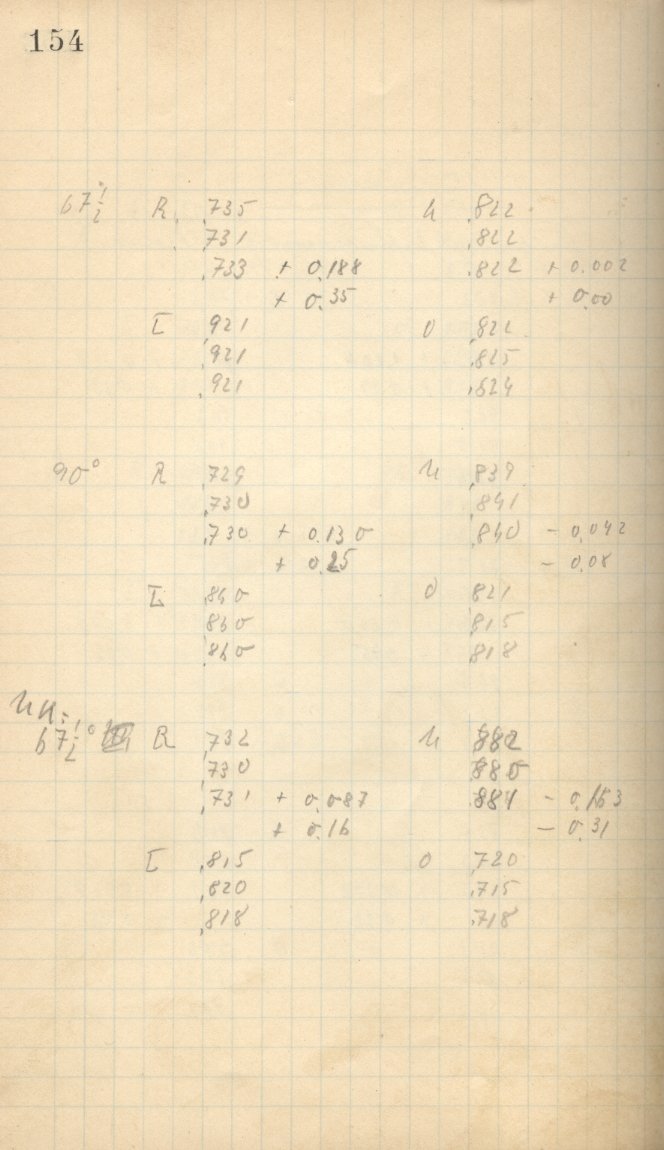 154
67 1/2 R ,735 U ,822
,731 ,822
,733 + 0,188 ,822 + 0.002
+ 0.35 + 0,00
L ,921 O ,822
,921 ,825
,921 ,824
90° R ,729 U ,839
,730 ,841
,730 + 0.130 ,840 - 0,042
+ 0.25 - 0,08
L ,860 O ,821
,860 ,815
,860 ,818
67 1/2° R ,732 U ,882
,730 ,885
,731 + 0,087 ,884 - 0,163
+ 0.16 - 0,31
L ,815 O ,720
,820 ,715
,818 ,718